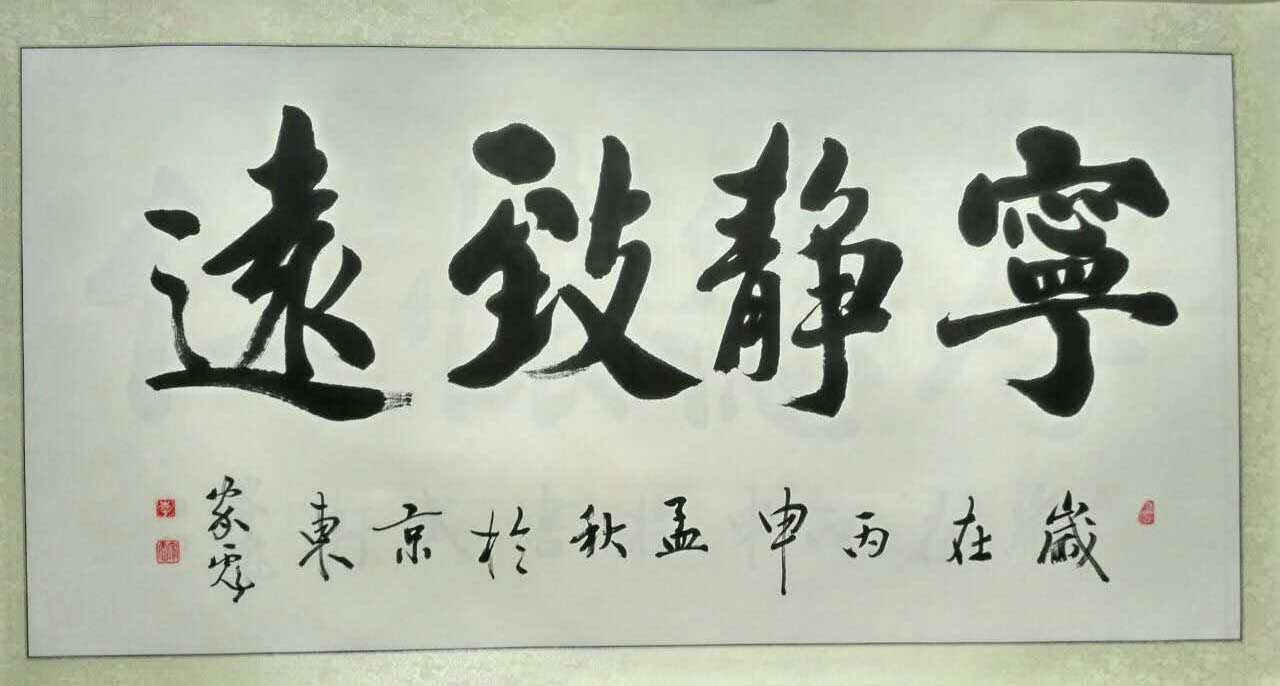 寧静致遠
歲在丙申孟秋於京東
家